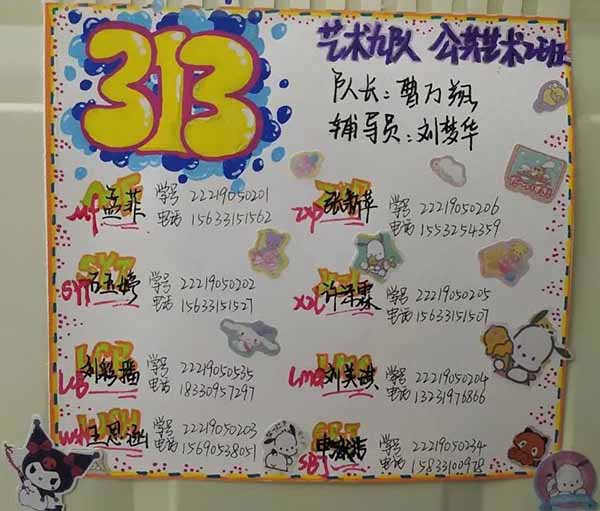 313
艺术九队 公共艺术2班
队长：曹万翔
辅导员：刘梦华
mf 孟菲 学号 22219050201
电话 15633151562
zxp 张新苹 学号 22219050206
电话 1553254359
syt 石玉婷 学号 22219050202
电话 15633151527
xzl 许泽霖 学号 22219050205
电话 15633151507
LCB 刘彩播 学号 22219050535
电话 18330957297
LMQ 刘美琪 学号 22219050204
电话 13231976866
wsh 王思涵 学号 22219050203
电话 15690538051
SBJ 学号 22219050234
电话 15833100978